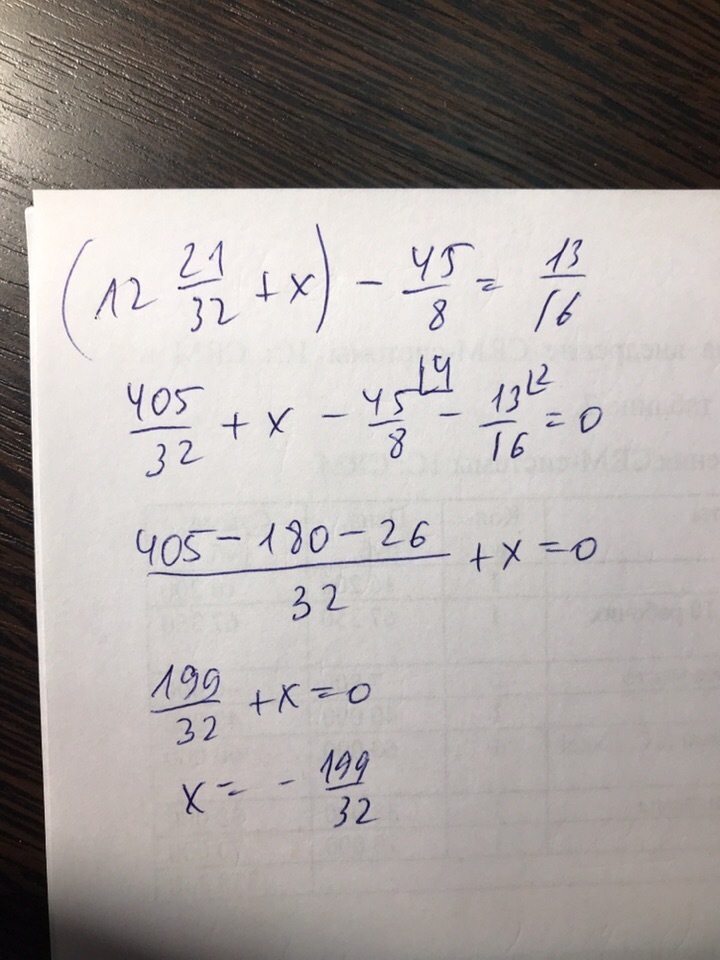 (12 21/32 + x) - 45/8 = 13/16
405/32 + x - 45/8 ⌊4 - 13/16 ⌊2 = 0
405 - 180 - 26/32 + x = 0
199/32 + x = 0
x = - 199/32